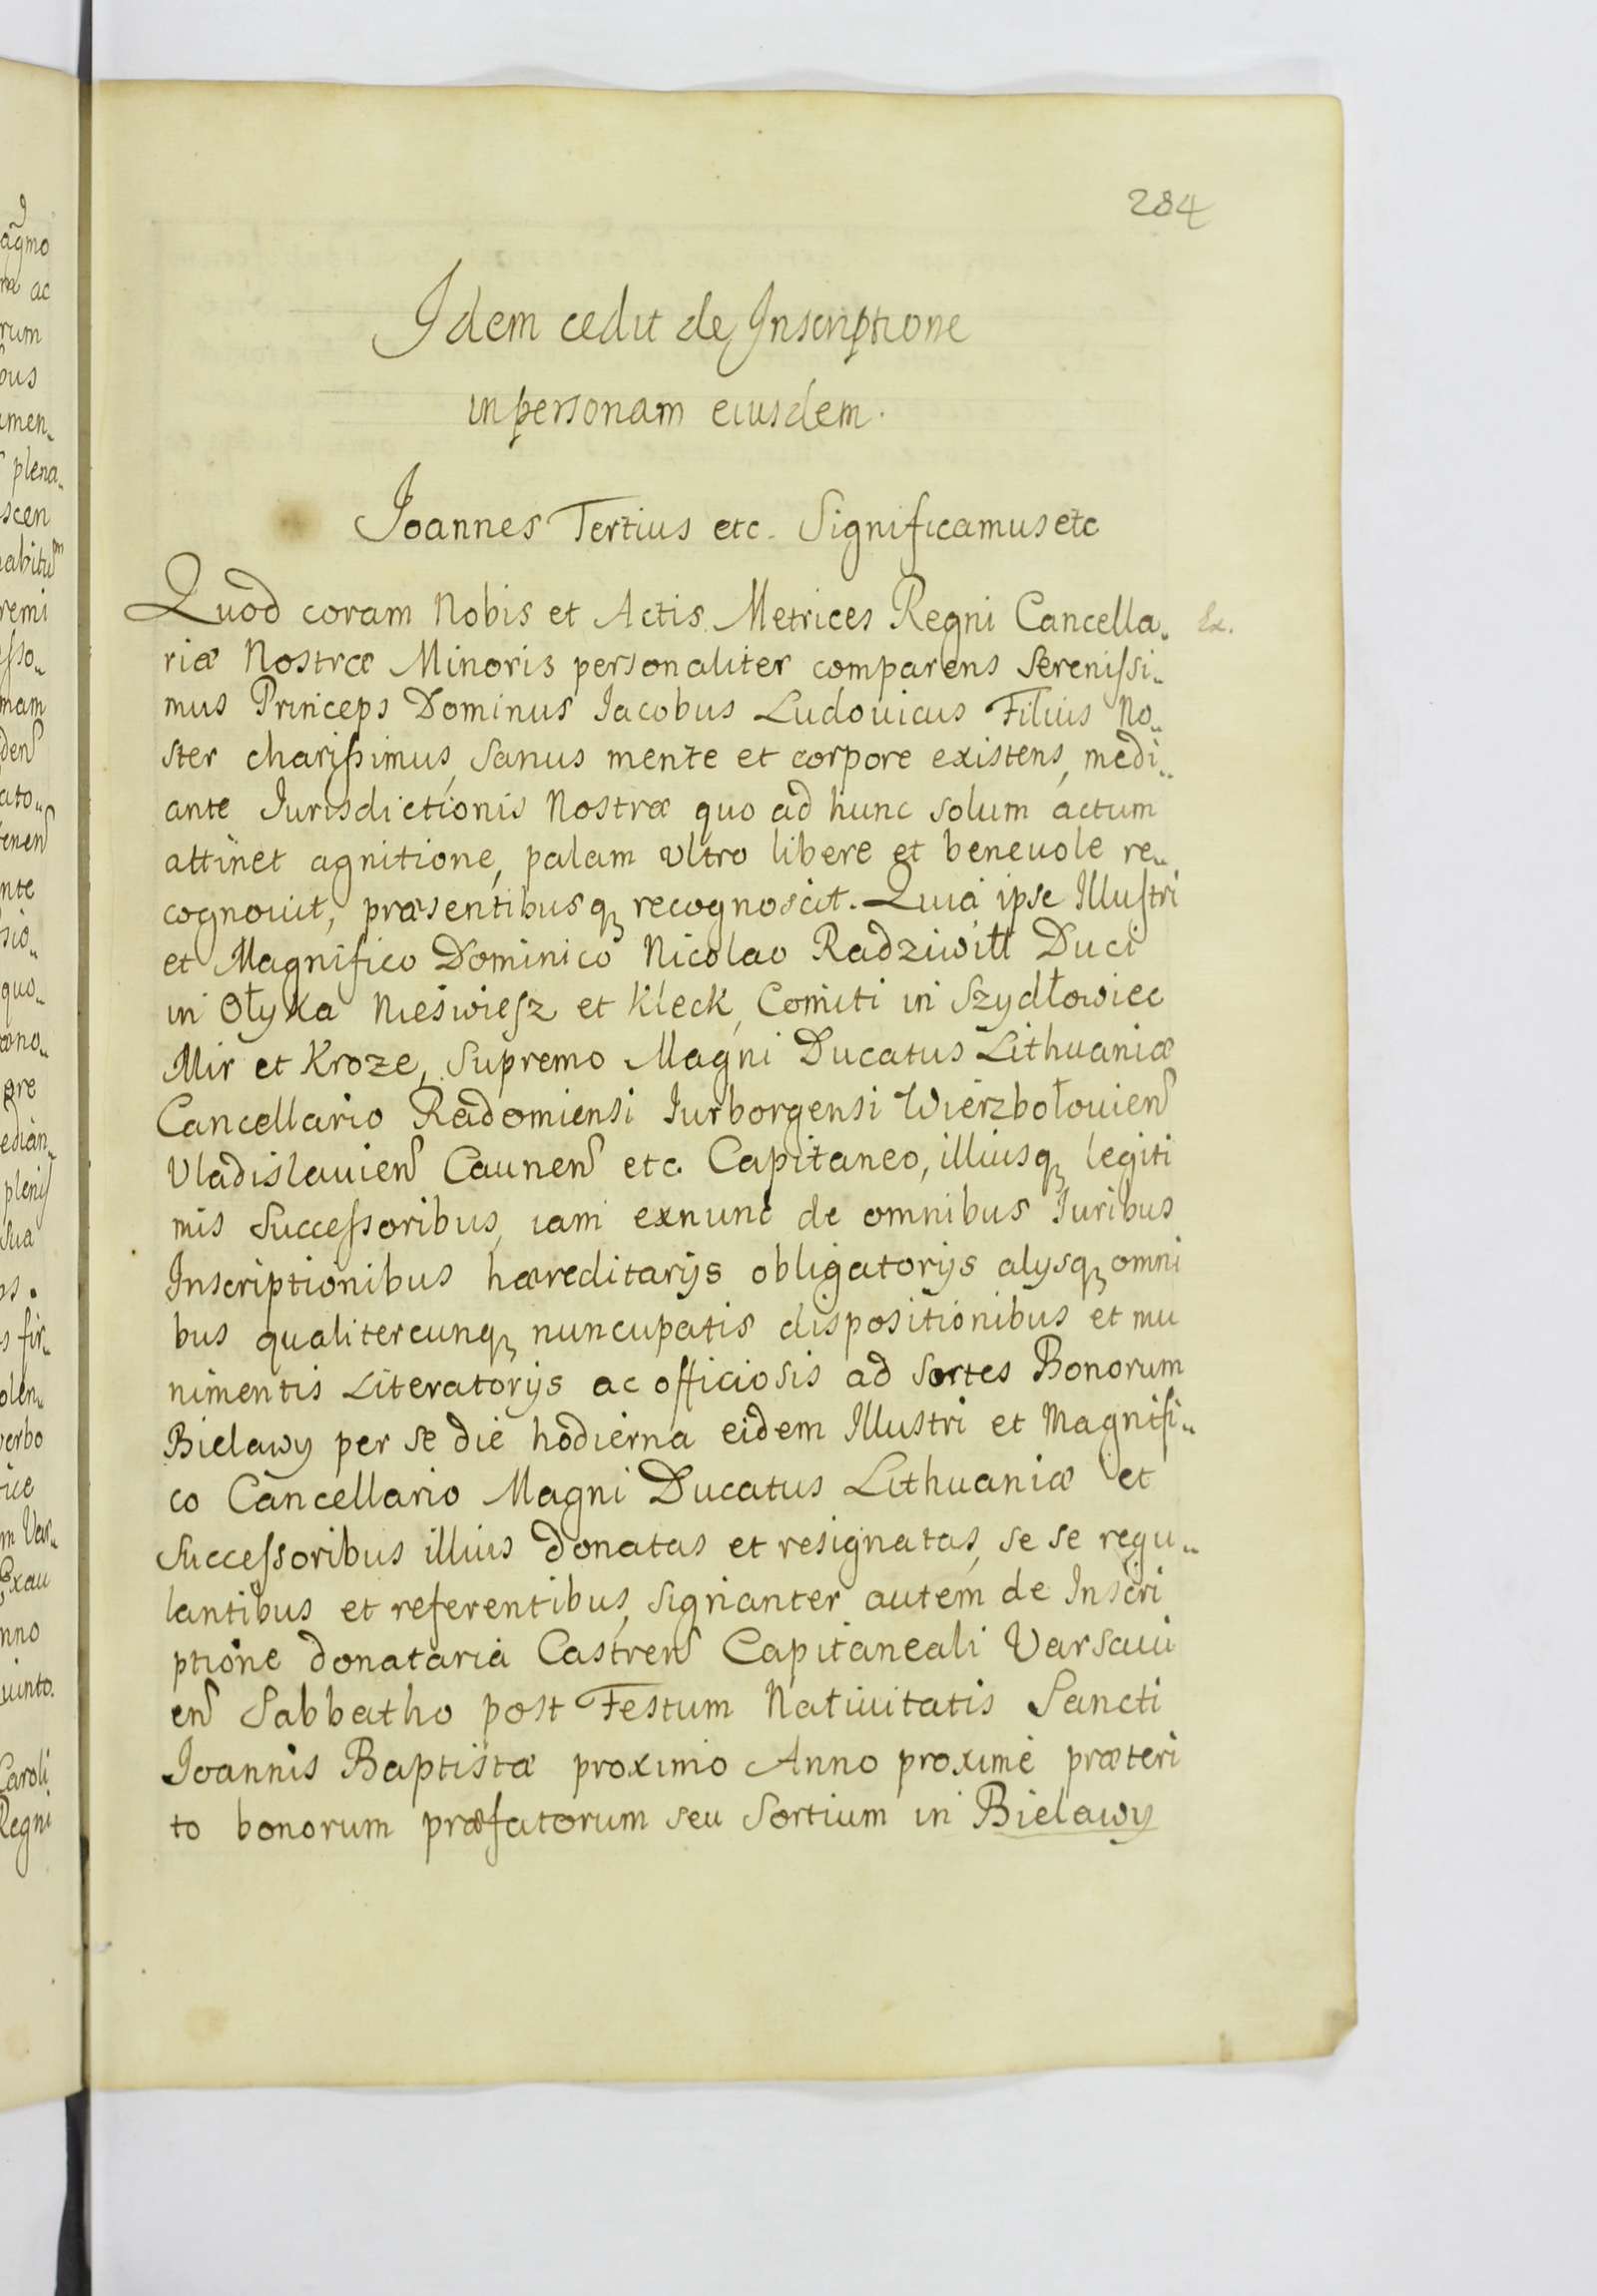 284
Idem cedit de Inscriptione
in personam eiusdem.
Joannes Tertius etc. Significamus etc
Quod coram Nobis et Actis Metrices Regni Cancella„
riæ Nostræ Minoris personaliter comparens Sereniſsi„
mus Princeps Dominus Iacobus Ludouicus Filius No„
ster chariſsimus, Sanus mente et corpore existens, medi„
ante Jurisdictionis Nostræ quo ad hunc solum actum
attinet agnitione, palam vltro libere et beneuole re„
cognouit, præsentibusq3 recognoscit. Quia ipse Illuſtri
et Magnifico Dominico Nicolao Radziwiłł Duci
in Ołyka Nieświeſz et Kleck, Comiti in Szydłowiec
Mir et Kroze, Supremo Magni Ducatus Lithuaniæ
Cancellario Radomiensi Iurborgensi Wierzbołouien̄
Vladislauien̄ Caunen̄ etc. Capitaneo, illiusq3 legiti
mis Succeſsoribus, iam exnunc de omnibus Iuribus
Inscriptionibus hæreditarijs obligatorijs alysq3 omni
bus qualitercunq3 nuncupatis dispositionibus et mu
nimentis Literatorijs ac officiosis ad Sortes Bonorum
Bielawy per se die hodierna eidem Illustri et Magnifi„
co Cancellario Magni Ducatus Lithuaniæ et
Succeſsoribus illius donatas et resignatas, se se regu„
lantibus et referentibus, signanter autem de Inscri
ptione donataria Castren̄ Capitaneali Varsaui
en̄ Sabbatho post Festum Natiuitatis Sancti
Joannis Baptistæ proximo Anno proxime præteri
to bonorum præfatorum seu Sortium in Bielawy